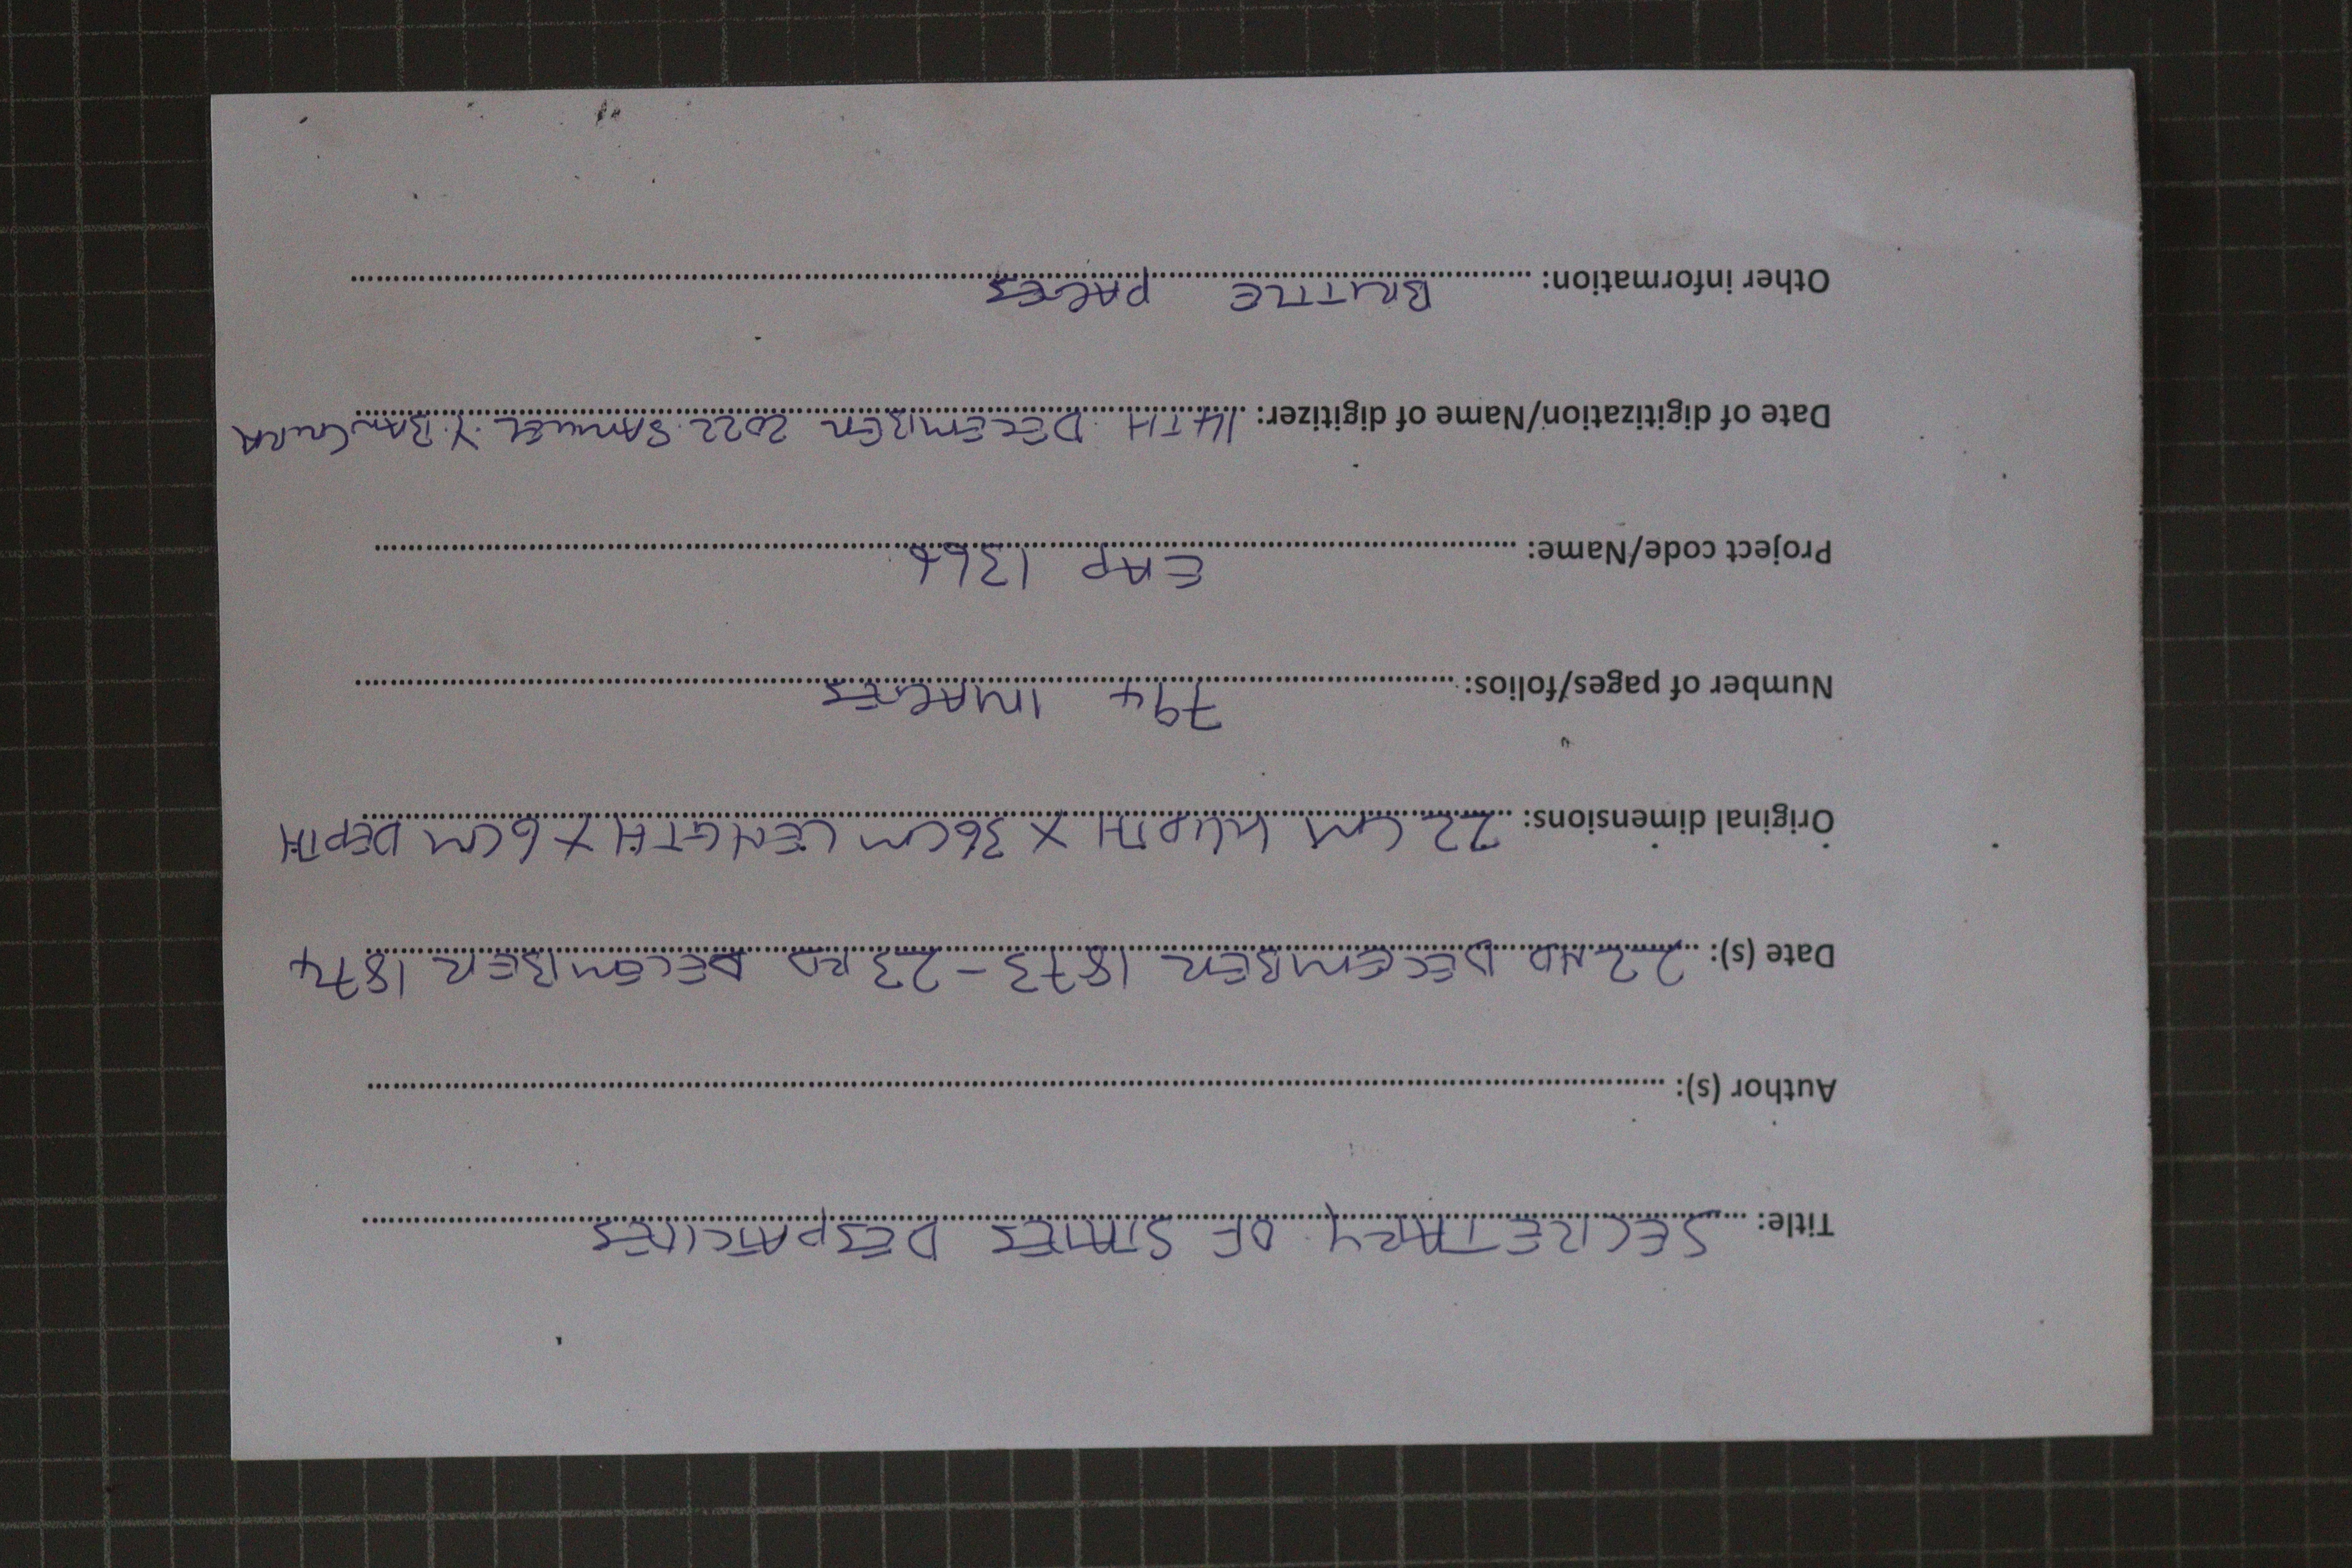 Title: SECRETARY OF STATES DESPATCHES
Author (s):
Date (s): 22ND DECEMBER 1873 - 23RD DECEMBER 1874
Original dimensions: 22 CM WIDTH X 36CM LENGTH X 6CM DEPTH
Number of pages/folios: 794 IMAGES
Project code/Name: EAP 1366
Date of digitization/Name of digitizer: 14TH DECEMBER 2022 SAMUEL Y. BANGURA
Other information: BRITTLE PAGES